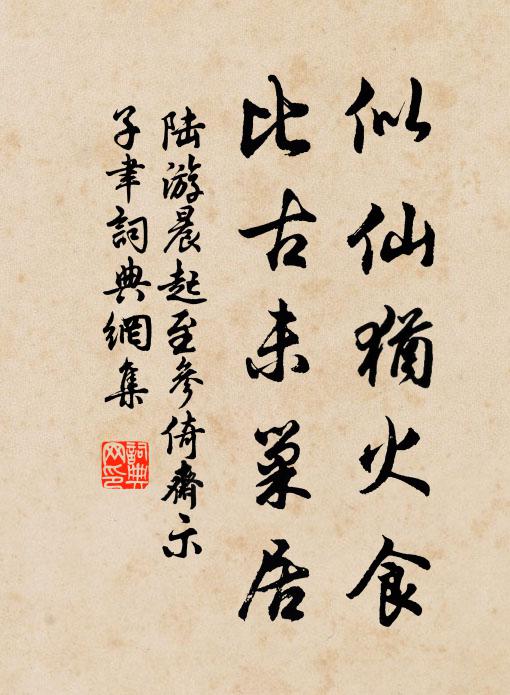 似仙猶火食
比古未巢居
陆游晨起至參倚齋示
子聿詞典網集
詞典
网印